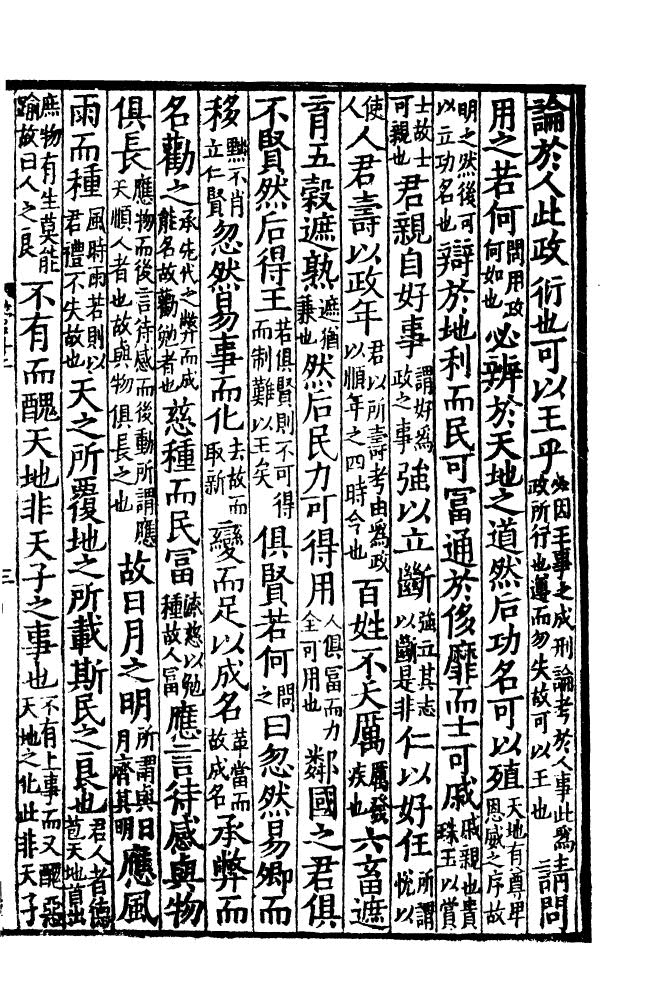 論於人此政衍也可以王乎必因王事之成刑論考於人事此爲政所行也遵而勿失故可以王也請問
用之若何問用政何如也必辨於天地之道然后功名可以殖天地有尊卑恩威之序故
明之然後可以立功名也辯於地利而民可富通於侈靡而士可戚戚親也貴珠玉以賞
士故士可親也君親自好事謂好爲政之事強以立斷強立其志以斷是非仁以好任所謂悅以
使人人君壽以政年君以所壽考由爲政以順年之四時令也百姓不夭厲厲發疾也六畜遮
育五穀遮熟遮猶蒹也然后民力可得用人俱富而力全可用也鄰國之君俱
不賢然后得王若俱賢則不可得而制難以王矣俱賢若何問之曰忽然易卿而
移黜不肖立仁賢忽然易事而化去故而取新變而足以成名革當而故成名承弊而
名勸之承先代之弊而成能名故勸勉者也慈種而民富慈以勉種故人富應言待感與物
俱長應物而後言待感而後動所謂應天順人者也故與物俱長之也故日月之明所謂與日月齊其明應風
雨而種風時雨若則以君禮不失故也天之所覆地之所載斯民之良也君人者德苞天地首出
庶物有生莫能踰故曰人之良不有而醜天地非天子之事也不有上事而又醜惡天地之化此非天子